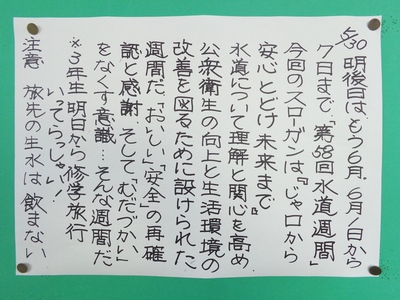 5/30 明後日は、もう6月。6月1日から
7日まで、「第58回水道週間」
今回のスローガンは『じゃ口から
安心とどけ 未来まで』
水道について理解と関心を高め
公衆衛生の向上と生活環境の
改善を図るために設けられた
週間だ。「おいしい」「安全」の再確
認と感謝、そして「むだづかい」
をなくす意識…そんな週間だ
※3年生明日から修学旅行
いってらっしゃい!
注意 旅先の生水は飲まない